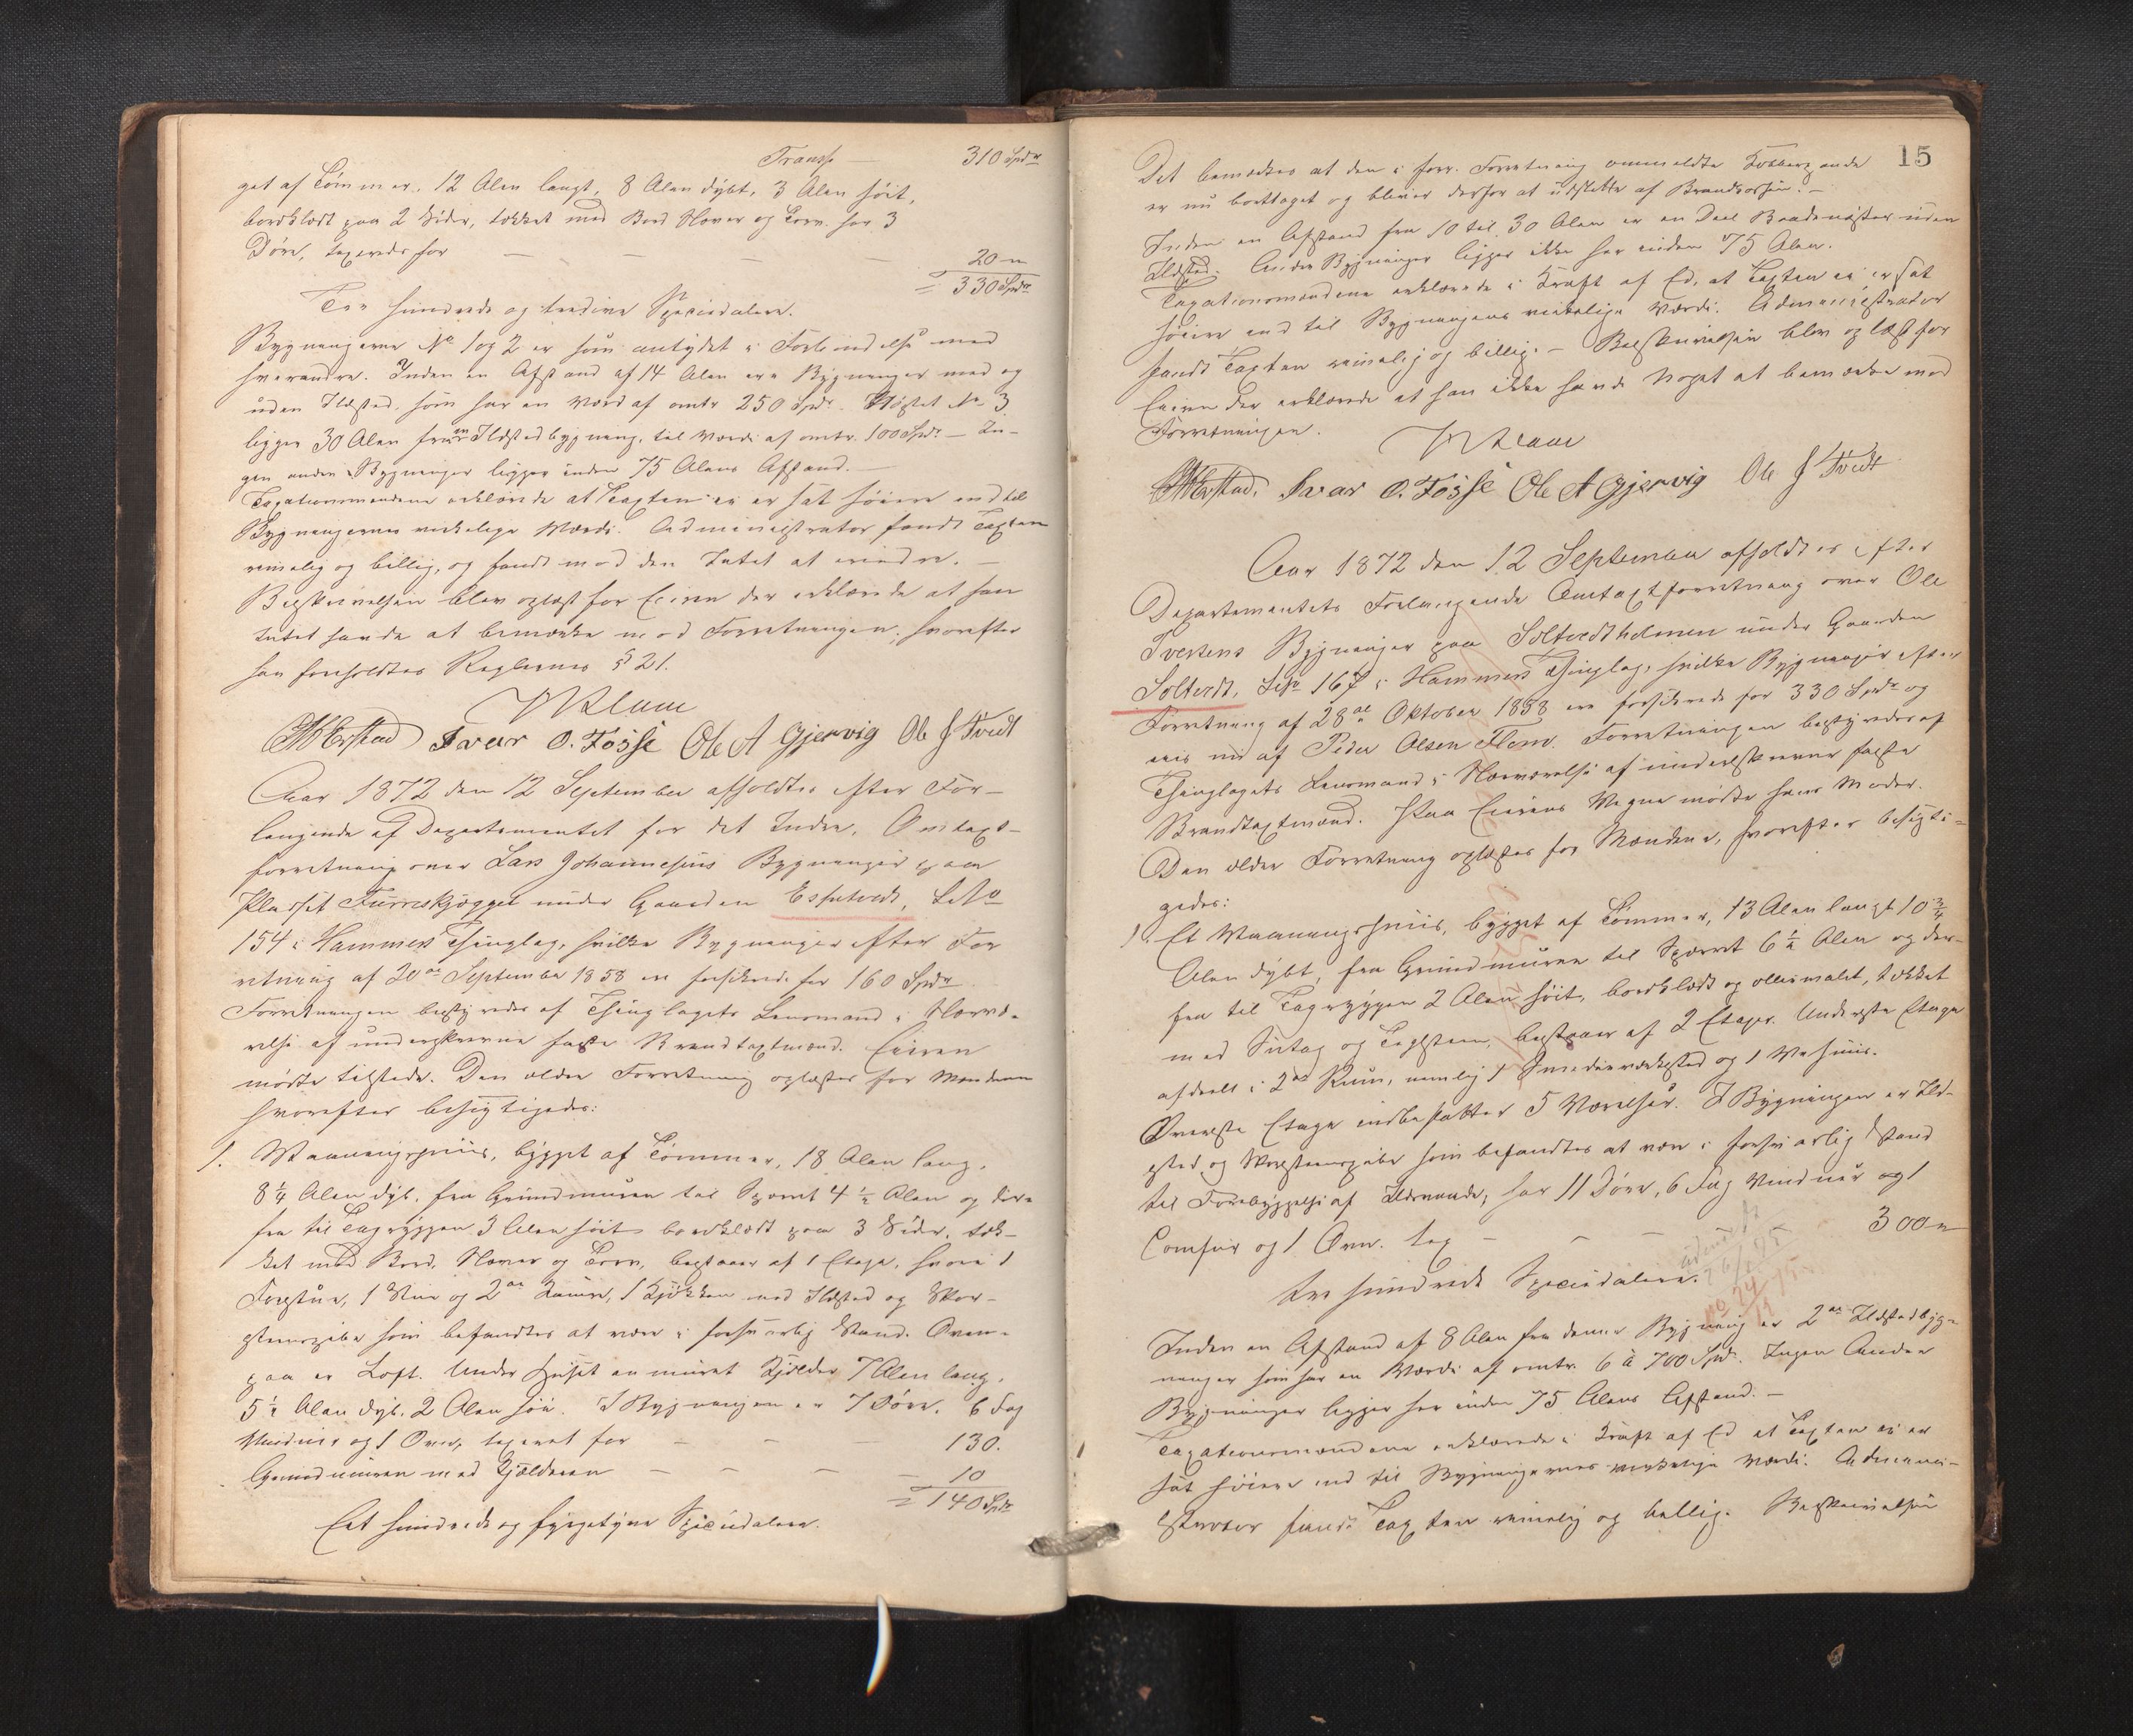 Transp — 310 Spdr
get af Tømmer, 12 Alen langt, 8 Alen dybt, 3 Alen høit,
bordklædt paa 2 Sider, tækket med Bord Næver og Torv. har 3
Døre, taxeredes for — — — — 20 "
= 330 Spdr
Tre hundrede og tredive Speciedalere.
Bygningerne No 1 og 2 er som antydet i Forbindelse med
hverandre. Inden en Afstand af 14 Alen ere Bygninger med og
uden Ildsted, som har en Værd af omtr 250 Spdr. Huset No 3
ligger 30 Alen fra en Ildstedbygning, til Værdi af omtr. 100 Spdr — In-
gen anden Bygninger ligger inden 75 Alens Afstand. —
Taxationsmændene erklærede at Taxten ei er sat høiere end til
Bygningernes virkelige Værdi. Administrator fandt Taxten
rimelig og billig, og fandt mod den Intet at erindre. —
Beskrivelsen blev oplæst for Eieren der erklærede at han
Intet havde at bemærke mod Forretningen, hvorefter
han foreholdtes Reglernes § 21.
Ivar O. Fosse Ole A Gjervig Ole J Tvedt
Aar 1872 den 12 September afholdtes efter For-
langende af Departementet for det Indre, Omtaxt-
forretning over Lars Johannesens Bygninger paa
Pladset Furreskjægget under Gaarden Espetvedt, LNo
154 i Hammers Thinglag, hvilke Bygninger efter For
retning af 20de September 1858 ere forsikrede for 160 Spdr
Forretningen bestyredes af Thinglagets Lensmand i Nærvæ-
relse af underskrevne faste Brandtaxtmænd. Eieren
mødte tilstede. Den ældre Forretning oplæstes for Mændene
hvorefter besigtigedes:
1. Vaaningshuus, bygget af Tømmer, 18 Alen lang,
8 1/4 Alen dyb, fra Grundmuren til Sparret 4 1/2 Alen og der-
fra til Tagryggen 3 Alen høit, bordklædt paa 3 Sider, tæk-
ket med Bord, Næver og Torv, bestaaer af 1 Etage, hvori 1
Forstue, 1 Stue og 2de Kamre, 1 Kjøkken med Ildsted og Skor-
stenspibe som befandtes at være i forsvarlig Stand. Oven-
paa er Loft. Under Huset en muret Kjelder 7 Alen lang,
5 1/2 Alen dyb, 2 Alen høi. I Bygningen er 7 Døre, 6 Fag
Vinduer og 1 Ovn, taxeret for — — — 130.
Grundmuren med Kjælderen — — — 10
= 140 Spdr
Eet hundrede og fyrgetyve Speciedalere.
15
Det bemærkes at den i forr. Forretning ommeldte Kobberpande
er nu borttaget og bliver derfor at udslette af Brandcassen. —
Inden en Afstand fra 10 til 30 Alen er en Deel Baadenøster uden
Ildsted. Andre Bygninger ligger ikke her inden 75 Alen.
Taxationsmændene erklærede i Kraft af Ed, at Taxten ei er sat
høiere end til Bygningens virkelige Værdi. Administrator
fandt Taxten rimelig og billig. — Beskrivelsen blev oplæst for
Eieren der erklærede at han ikke havde Noget at bemærke mod
Forretningen.
Ivar O. Fosse Ole A Gjervig Ole J Tvedt
Aar 1872 den 12 September afholdtes efter
Departementets Forlangende Omtaxtforretning over Ole
Iversens Bygninger paa Soltvedtholmen under Gaarden
Soltvedt, LNo 167 i Hammers Thinglag, hvilke Bygninger efter
Forretning af 28de Oktober 1858 ere forsikrede for 330 Spdr og
eies nu af Peder Olsen Flem. Forretningen bestyredes af
Thinglagets Lensmand i Nærværelse af underskrevne faste
Brandtaxtmænd. Paa Eierens Vegne mødte hans Moder.
Den ældre Forretning oplæstes for Mændene, hvorefter besigti-
gedes:
1. Et Vaaningshuus, bygget af Tømmer, 13 Alen langt 10 3/4
Alen dybt, fra Grundmuren til Sparret 6 1/2 Alen og der-
fra til Tagryggen 2 Alen høit, bordklædt og oliemalet, tækket
med Sutag og Taglsteen, bestaaer af 2 Etager. Underste Etage
afdeelt i 2de Rum, nemlig 1 Smedieværksted og 1 Vedhuus.
Øverste Etage indbefatter 5 Værelser. I Bygningen er Ild-
sted og Skorstenspibe som befandtes at være i forsvarlig Stand
til Forebyggelse af Ildsvaade, har 11 Døre, 6 Fag Vinduer og 1
Comfur og 1 Ovn. tax — — — 300 "
Tre hundrede Speciedalere.
Inden en Afstand af 8 Alen fra denne Bygning er 2de Ildstedbyg-
ninger som har en Værdi af omtr. 6 à 700 Spdr. Ingen Andre
Bygninger ligger her inden 75 Alens Afstand. —
Taxationsmændene erklærede i Kraft af Ed at Taxten ei er
sat høiere end til Bygningernes virkelige Værdi. Admini-
strator fandt Taxten rimelig og billig. Beskrivelsen